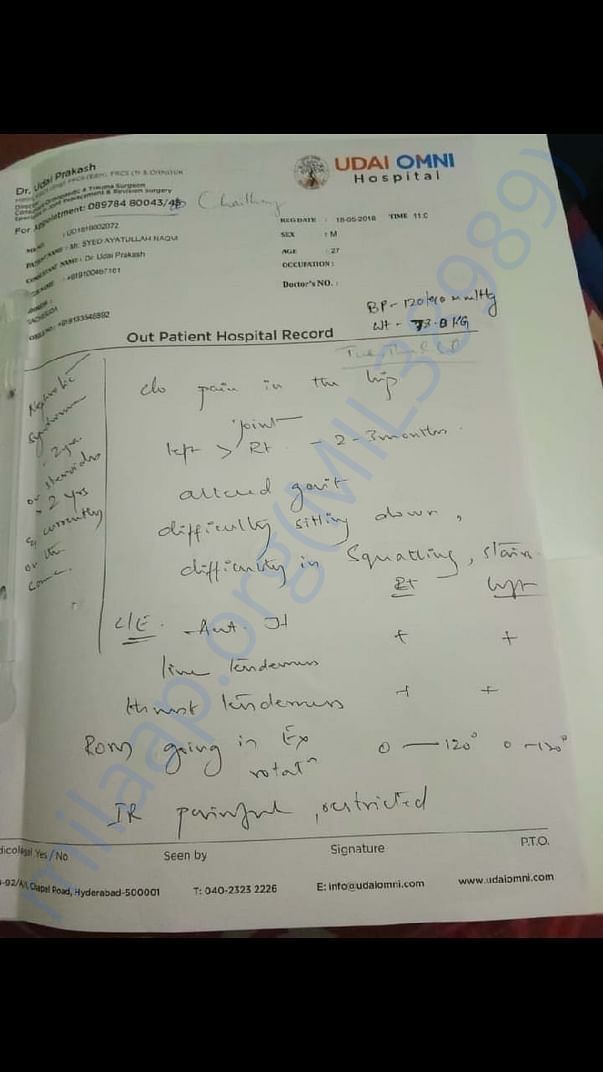 Dr. Udai Prakash
UDAI OMNI
Hospital
For Appointment: 089784 80043/48
REG DATE : 18-05-2018 TIME 11:0
: UD1818002072
SEX : M
PATIENT NAME : Mr. SYED AYATULLAH NAQVI
AGE : 27
CONSULTANT NAME : Dr Udai Prakash
OCCUPATION :
: +919100467161
Doctor's NO. :
BP - 120/90 mmHg
Wt - 73.0 KG
Out Patient Hospital Record
Nephrotic
Syndrome
- 2 yrs
on steroids
x 2 yrs
& currently
on the
same.
c/o pain in the hip
joint
left > Rt - 2-3 months.
altered gait
difficulty sitting down,
difficulty in Squatting, stairs
Rt left
L/E. - Ant. Jt + +
line tenderness
thrust tenderness + +
Rom going in Ex 0 — 120° 0 - 120°
rotatn
IR painful, restricted
dicolegal Yes / No Seen by Signature P.T.O.
Chapel Road, Hyderabad-500001 T: 040-2323 2226 E: info@udaiomni.com www.udaiomni.com
milaap.org(MIL33989)